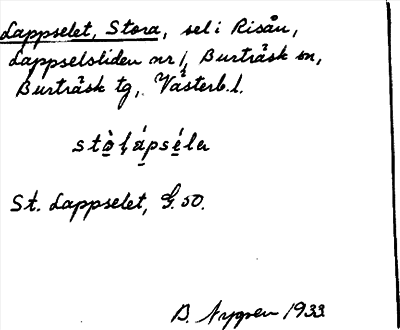 Lappselet, Stora, sel i Risån,
Lappselsliden nr 1, Burträsk sn,
Burträsk tg, Västerb. l.
stò̠l̥á̠psé̠la
St. Lappselet, G. 50.
B. Nygren 1933